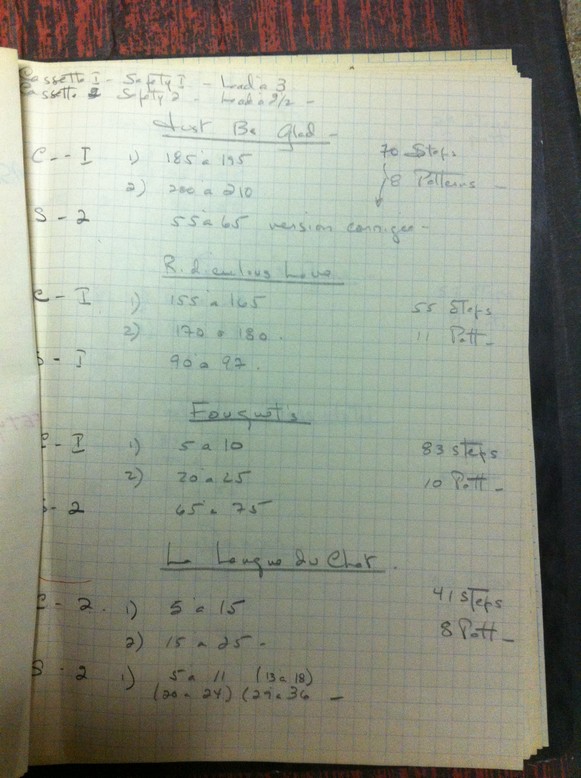 Cassette I - Safety I - Lead à 3
Cassette 2 Safety 2 - Lead à 2 1/2 -
Just Be Glad -
C - I 1) 185 à 195 70 Steps
2) 200 à 210 8 Patterns -
S - 2 55 à 65 version corrigée -
Ridiculous Love
C - I 1) 155 à 165 55 Steps
2) 170 à 180. 11 Patt -
S - I 90 à 97.
Fouquet's
C - I 1) 5 à 10 83 Steps
2) 20 à 25 10 Patt -
S - 2 65 à 75
La Langue du Chat.
C - 2. 1) 5 à 15 41 Steps
2) 15 à 25 - 8 Patt -
S - 2 1) 5 à 11 (13 à 18)
(20 à 24) (29 à 36 -